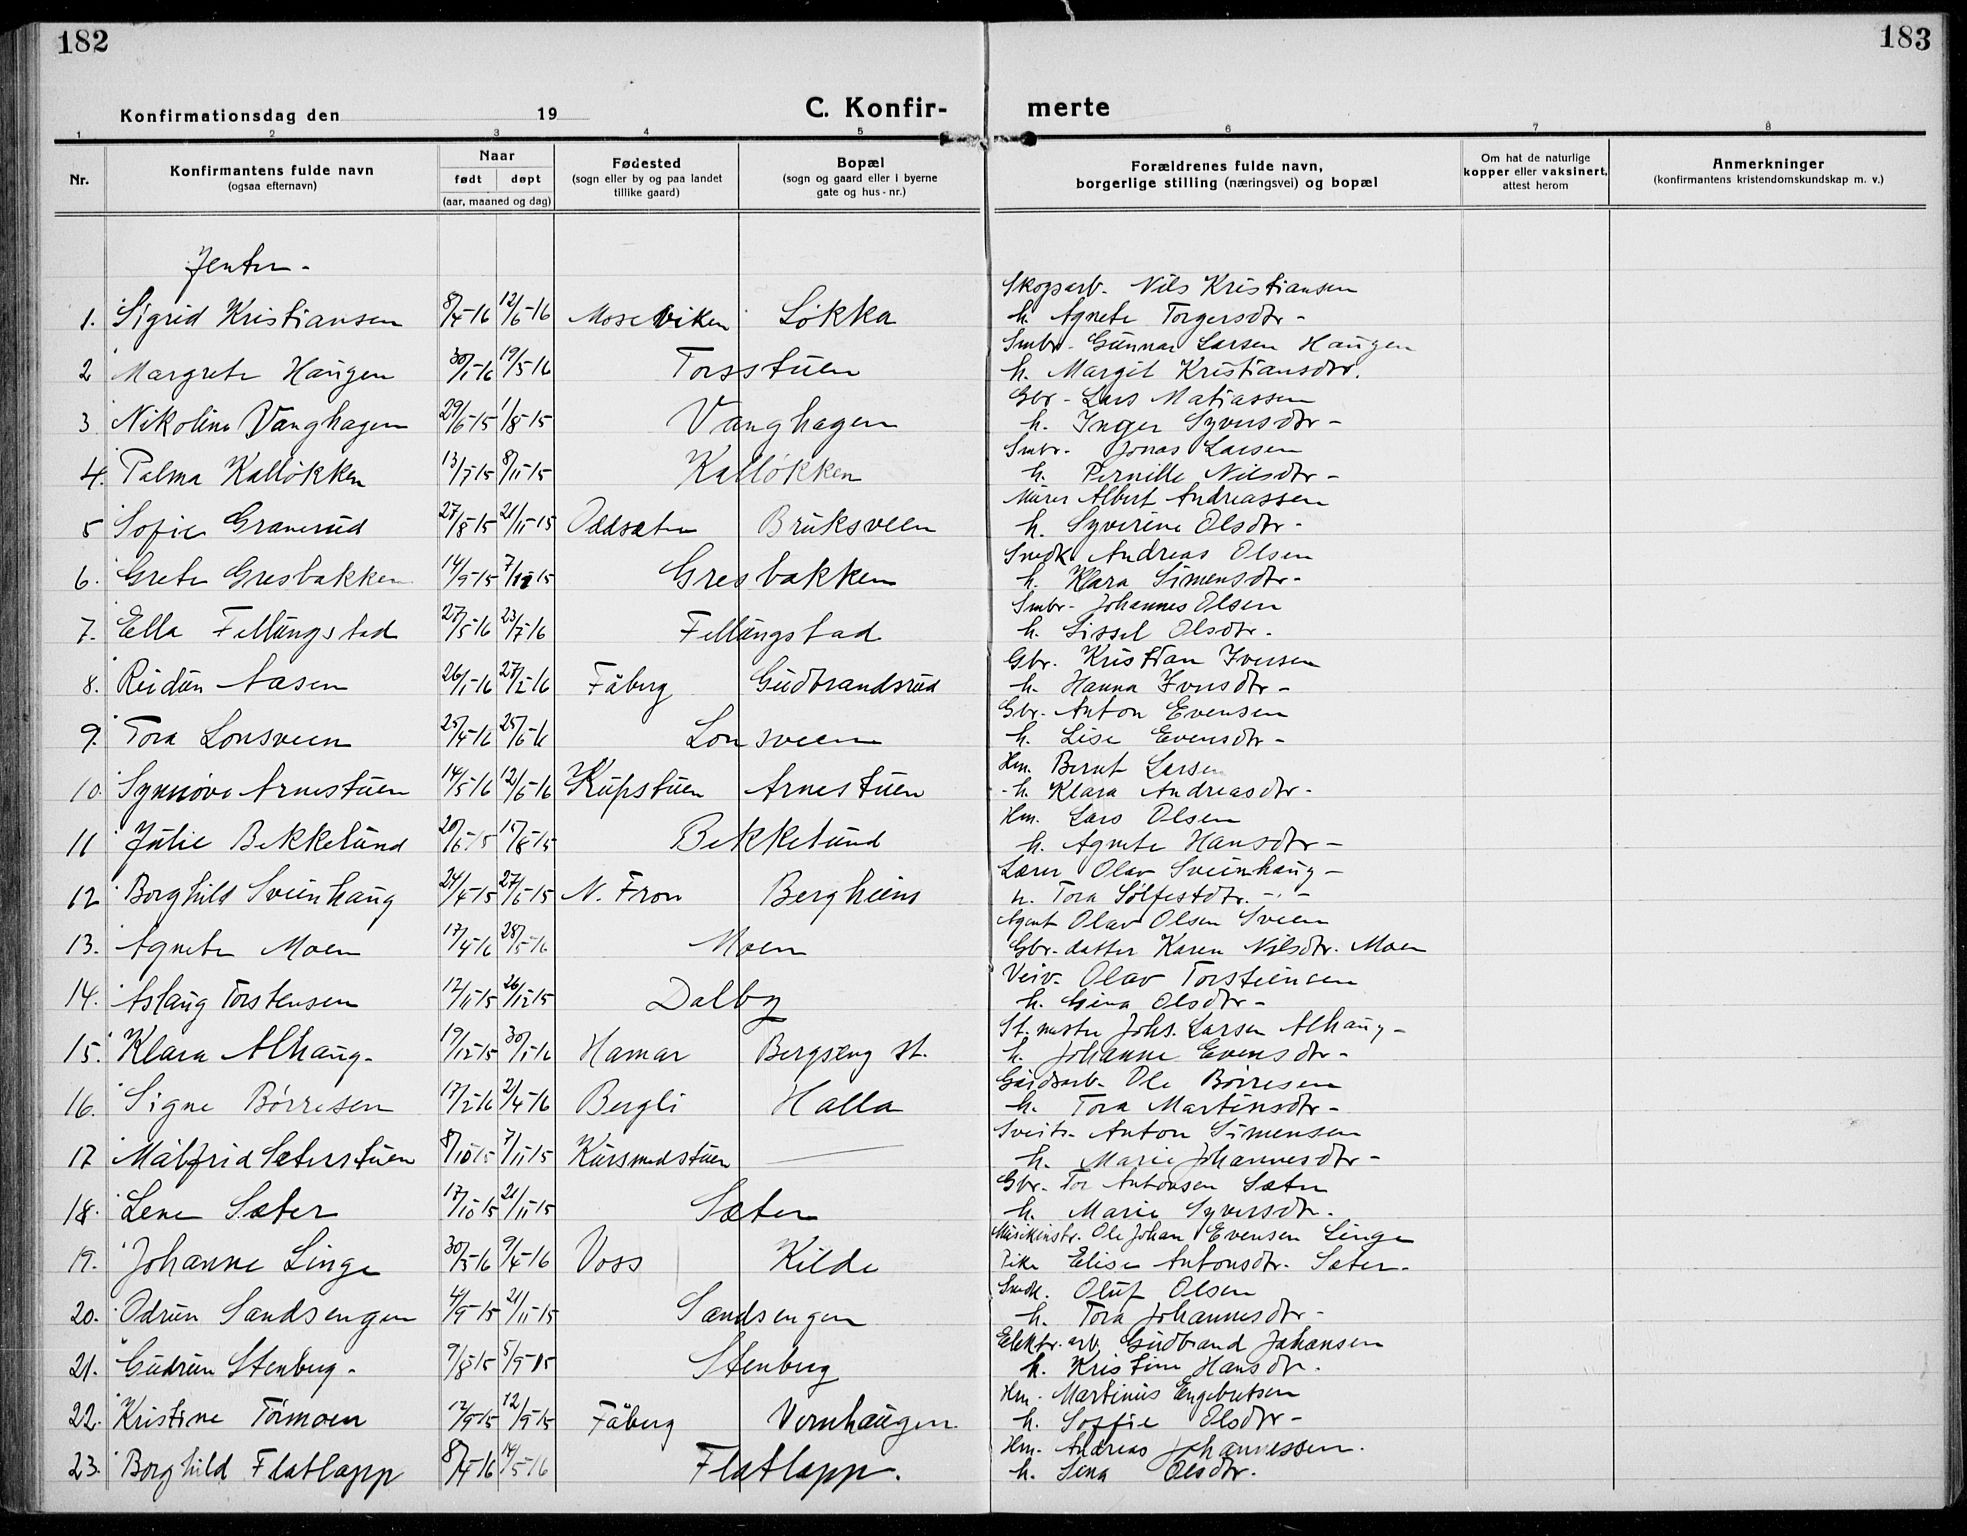 182
183
Konfirmationsdag den 19
C. Konfir-
merte
1 2 3 4 5 6 7 8
Nr.
Konfirmantens fulde navn
(ogsaa efternavn)
Naar
født døpt
(aar, maaned og dag)
Fødested
(sogn eller by og paa landet
tillike gaard)
Bopæl
(sogn og gaard eller i byerne
gate og hus-nr.)
Forældrenes fulde navn,
borgerlige stilling (næringsvei) og bopæl
Om hat de naturlige
kopper eller vaksinert,
attest herom
Anmerkninger
(konfirmantens kristendomskundskap m. v.)
Jenter-
Skogsarb. Nils Kristiansen
1. Sigrid Kristiansen 8/4-16 12/6-16 Moseviken Løkka h. Agnete Torgersdtr-
Smbr. Gunnar Larsen Haugen
2 Margrete Haugen 30/1-16 19/3-16 Torsstuen h. Margit Kristiansdtr.
Gbr- Lars Matiassen
3 Nikoline Vanghagen 29/6-15 1/8-15 Vanghagen h. Inger Syversdtr-
Smbr. Jonas Larsen
4. Palma Kalløkken 13/7-15 8/11-15 Kalløkken h. Pernille Nilsdtr-
Murer Albert Andreassen
5 Sofie Granerud 27/8-15 21/11-15 Oddsæter Bruksveen h. Syverine Olsdtr-
Snedk. Andreas Olsen
6. Grete Gresbakken 14/9-15 7/11-15 Gresbakken h. Klara Simensdtr-
Smbr- Johannes Olsen
7. Ella Fellungstad 27/5-16 23/7-16 Fellungstad h. Sissel Olsdtr.
Gbr. Kristian Iversen
8. Reidun Aasen 26/1-16 27/2-16 Fåberg Gudbrandsrud h. Hanna Iversdtr-
Gbr. Anton Evensen
9. Tora Lonsveen 25/4-16 25/6-16 Lonsveen h. Lise Evensdtr-
Hm. Bernt Larsen
10. Synnøve Arnestuen 14/5-16 12/6-16 Kupstuen Arnestuen h. Klara Andreasdtr-
Hm. Lars Olsen
11 Julie Bekkelund 20/6-15 15/8-15 Bekkelund h. Agnete Hansdtr-
Lærer Olav Sveinhaug-
12 Borghild Sveinhaug 24/4-15 27/6-15 N. Fron Bergheim h. Tora Sølfestdtr. -
Agent Olav Olsen Sveen
13. Agnete Moen 17/4-16 28/5-16 Moen Gbr-datter Karen Nilsdtr. Moen
Veiv. Olav Torsteinsen
14. Aslaug Torstensen 17/11-15 26/12-15 Dalby h. Gina Olsdtr-
St. mester Johs. Larsen Alhaug-
15. Klara Alhaug- 19/12-15 30/1-16 Hamar Bergseng st. h. Johanne Evensdtr-
Gårdsarb. Ole Børresen
16. Signe Børresen 17/2-16 2/4-16 Bergli Halla h. Tora Martinsdtr-
Sveits. Anton Simensen
17 Målfrid Sæterstuen 8/10-15 7/11-15 Kursmedstuen — h. Marie Johannesdtr-
Gbr- Tor Antonsen Sæter
18. Lene Sæter 17/10-15 21/11-15 Sæter h. Marie Syversdtr.
Musikinstr. Ole Johan Evensen Linge
19. Johanne Linge 30/3-16 9/4-16 Voss Kilde Pike Elise Antonsdtr. Sæter-
Snedk. Oluf Olsen
20. Odrun Sandsengen 4/9-15 21/11-15 Sandsengen h. Tora Johannesdtr-
Elektr. arb. Gudbrand Johansen
21. Gudrun Stenberg- 9/8-15 5/9-15 Stenberg h. Kristine Hansdtr.
Hm- Martinus Engebretsen
22. Kristine Tormoen 12/9-15 Fåberg Vernhaugen h. Soffie Olsdtr-
Hm- Andreas Johannessen.
23. Borghild Flatlapp 8/4-16 14/5-16 Flatlapp. h. Lina Olsdtr.